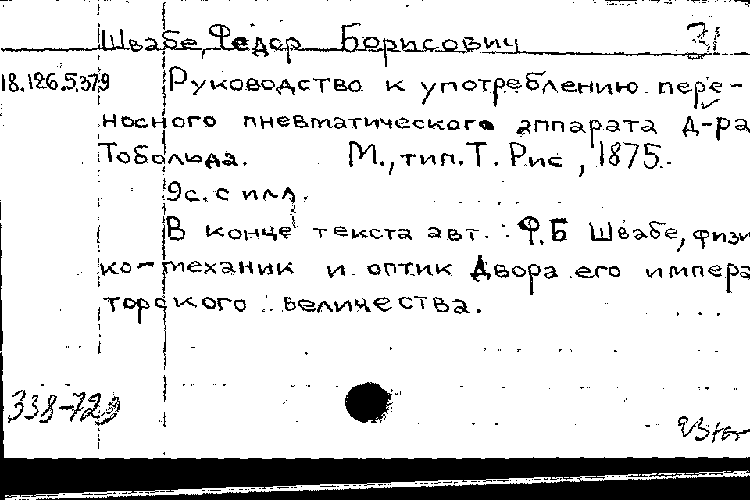 Швабе, Федор Борисович 31
18.126.5.379 Руководство к употреблению пере-
носного пневматического аппарата д-ра
Тобольда. М., тип. Т. Рис, 1875.
9с. с илл.
В конце текста авт.: Ф.Б Швабе, физи
ко-механик и оптик двора его импера
торского величества.
338-729